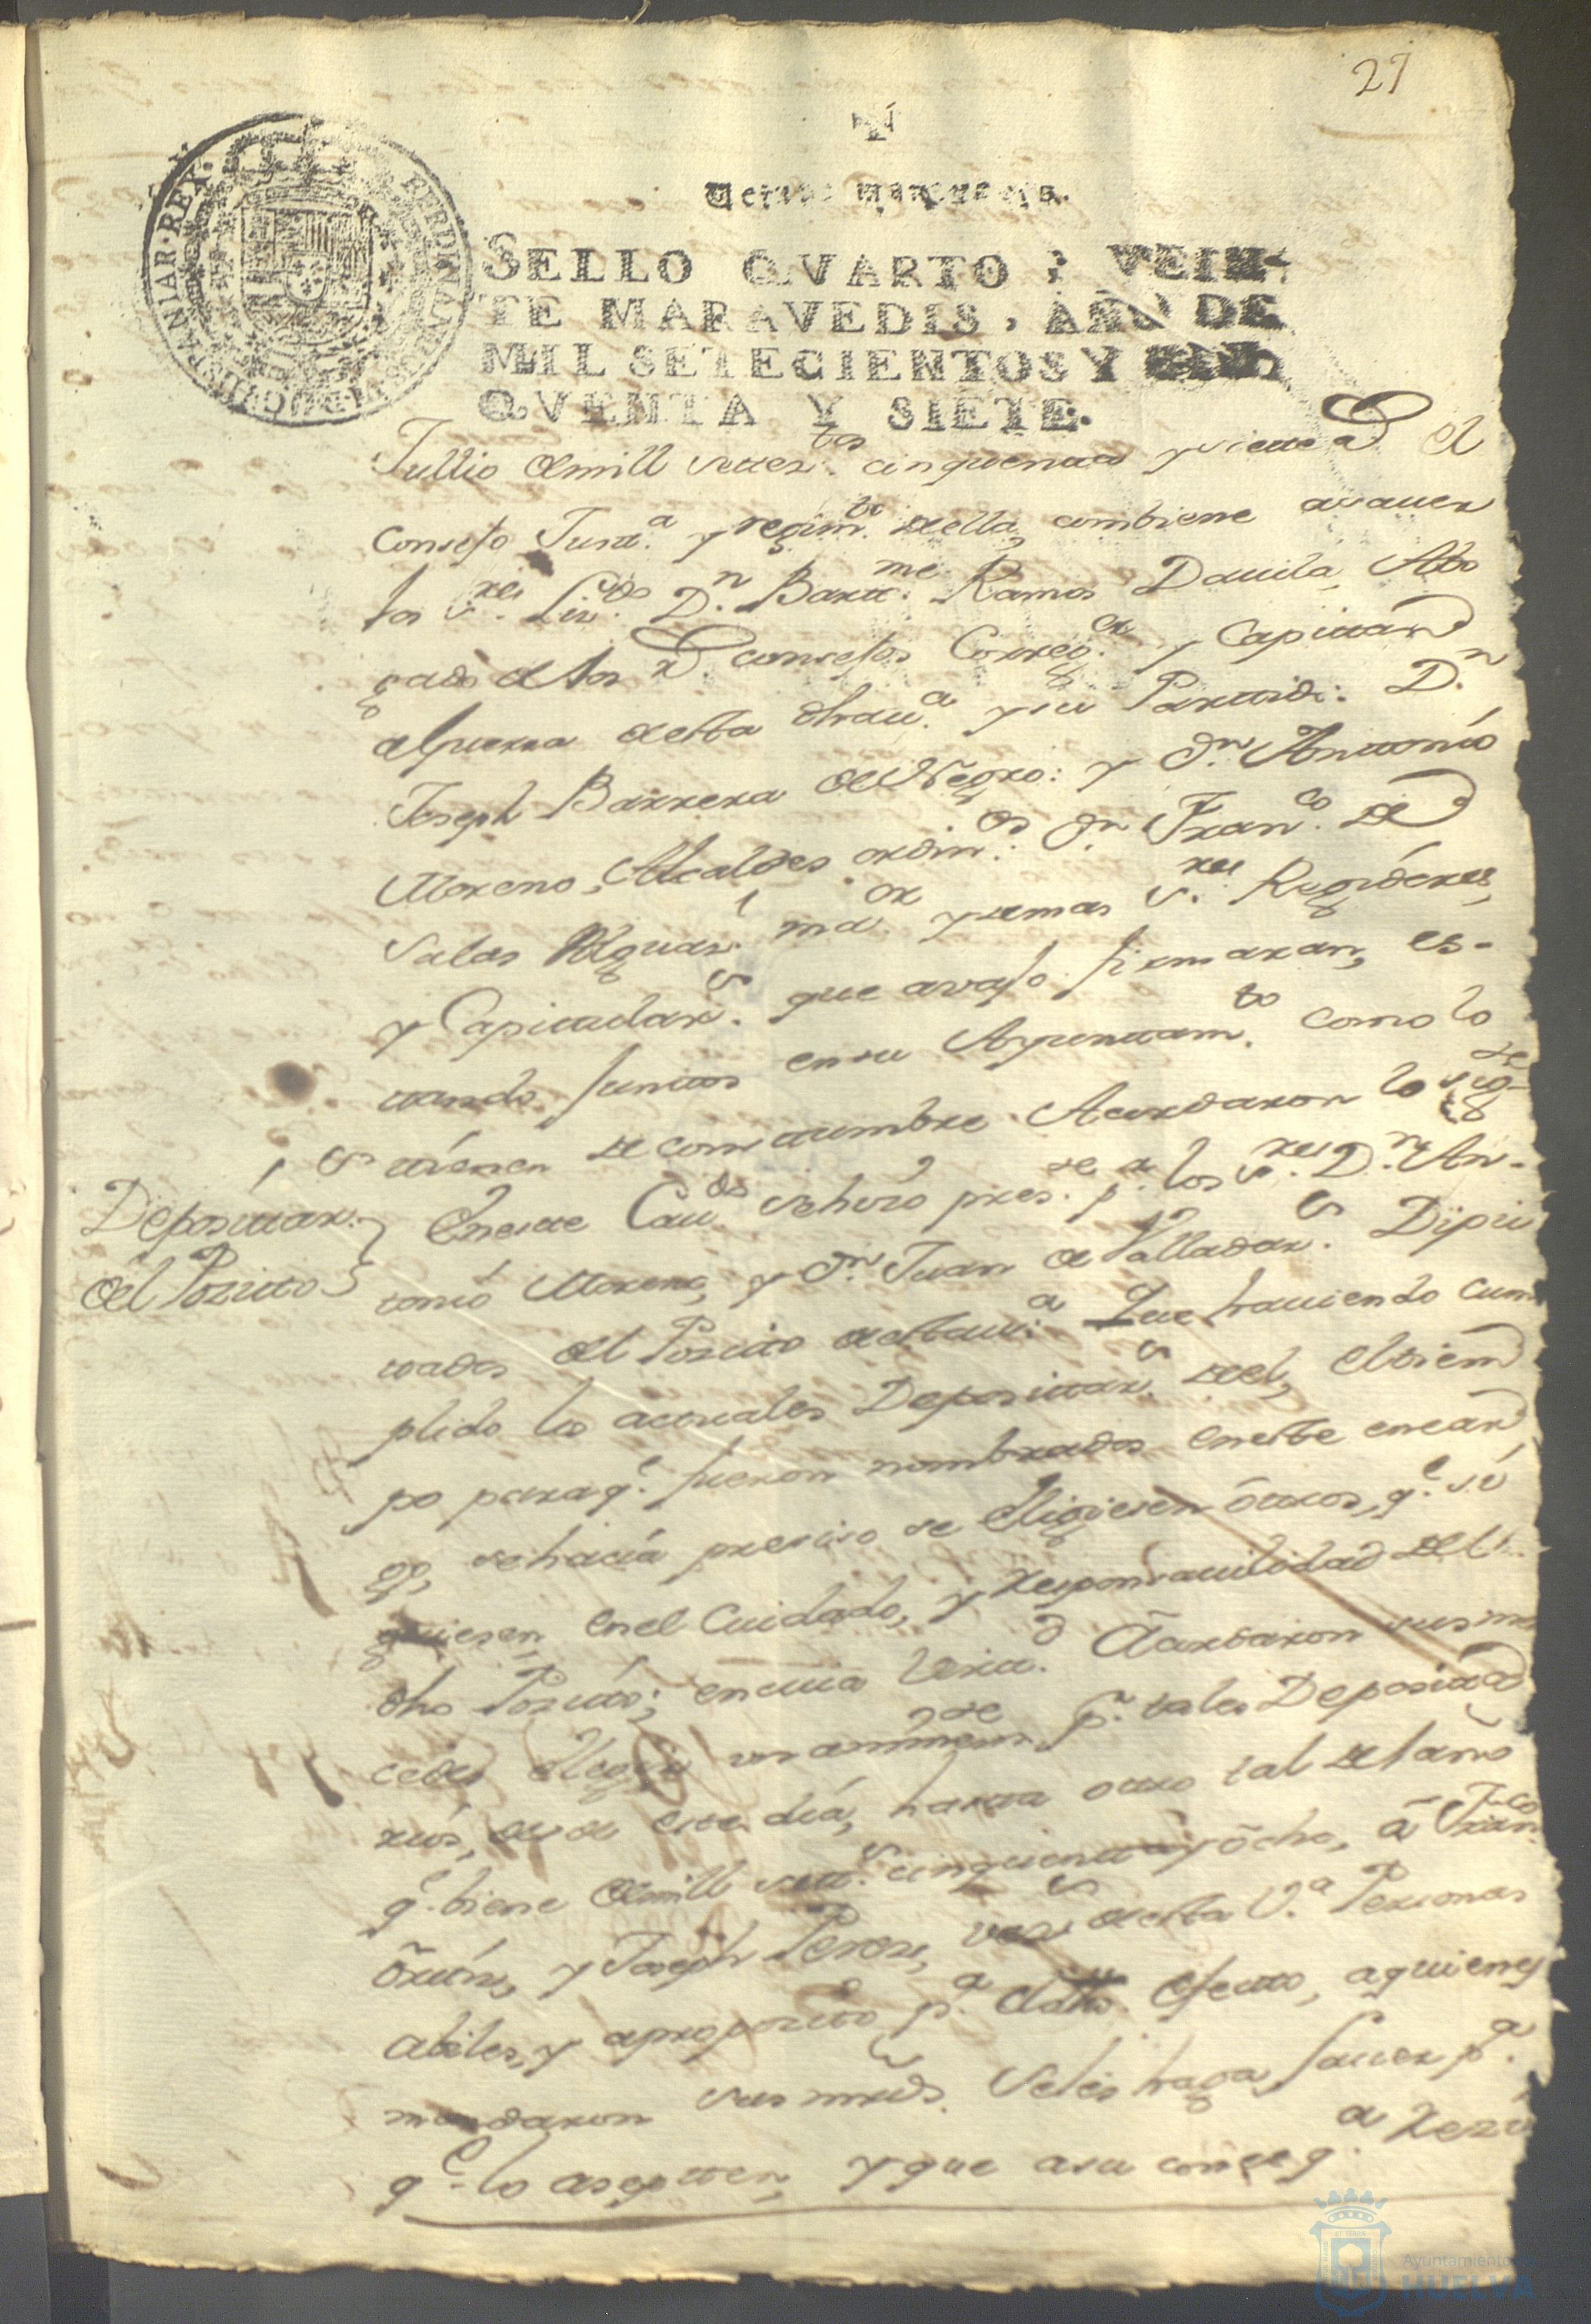 27
Veinte maravedis.
SELLO QVARTO, VEIN-
TE MARAVEDIS, AÑO DE
MIL SETECIENTOS Y CIN-
QVENTA Y SIETE.
FERDINANDUS VI D G HISPANIAR REX
Jullio de mill settez.tos cinquenta y siette el
Consejo Justt.a y regim.to de ella, combiene a sauer
los S.res Liz.do D.n Bartt.me Ramos Dauila, Abo
gado de los R. consejos Correg.or y Capittan
a Guerra de esta dha uill.a y su Partido: D.n
Joseph Barrera de Negro: y D.n Anttonio
Moreno, Alcaldes ordin.os D.n Fran.co de
Salas Alguas.l ma.or y demas S.res Regidores,
y Capittular.s que auajo firmaran, es-
tando junttos en su Ayunttam.to como lo
tienen de costtumbre Acordaron lo sig.te
Deposittar.s
del Pozitto
En este Cau.do se hizo pres.te p.r los S.res D.n An-
tonio Moreno, y D.n Juan de Valladar.s Dipu
tados del Pozitto de esta ui.a Que hauiendo cum
plido los acttuales Deposittar.s de el, el tiem
po para q.e fueron nombrados en este encar
go, se hacía preciso se eligiesen ottros, q.e si
guiesen en el Cuidado, y responsauilidad del
dho Pozitto; en cuia Virtt.d Acordaron sus mr
cedes elegir unanimem.te p.r tales Deposita
rios, desde este día, hasta ottro tal de el año
q.e biene de mill sett.s cinquenta y ocho, a Fran.co
Ortiz, y Joseph Perez, vez.s de esta V.a Personas
abiles, y a proposito p.a dicho efectto, a quienes
mandaron sus mrds. se les haga sauer p.a
q.e lo asepten, y que a su conseq.a
Ayuntamiento de
HUELVA